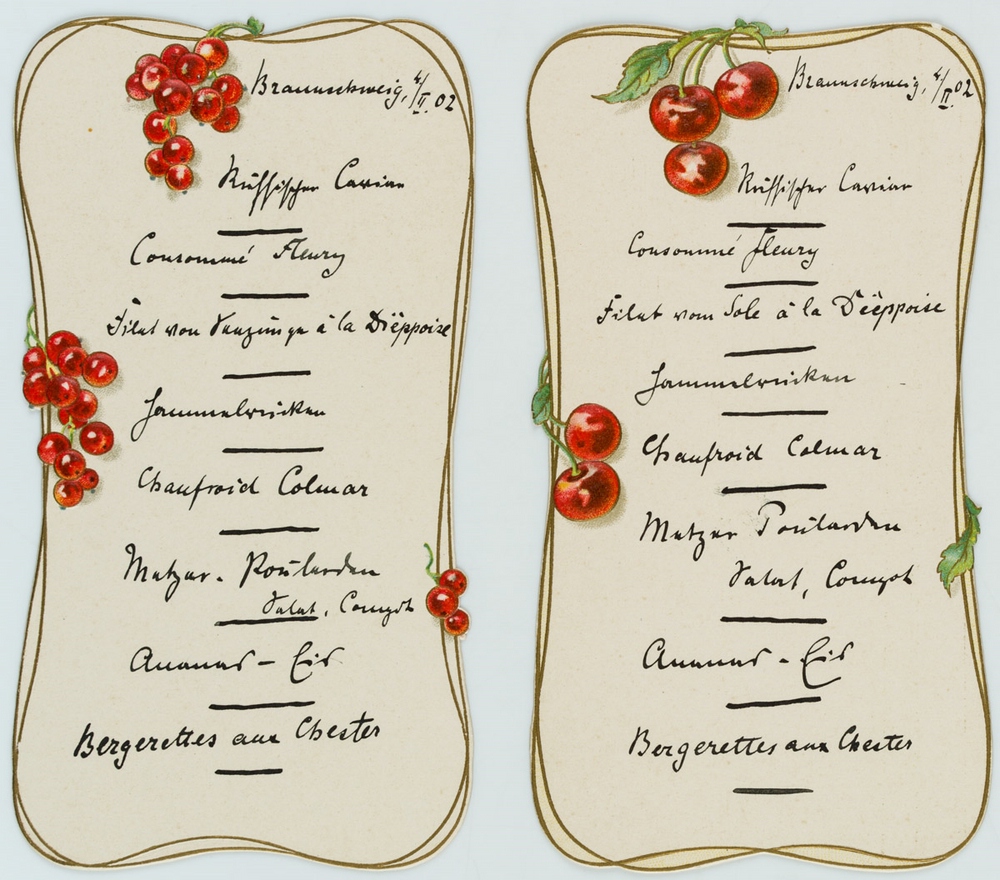 Braunschweig, 4/II. 02
Russischer Caviar
Consommé Fleury
Filet von Seezunge à la Dièppoise
Hammelrücken
Chaufroid Colmar
Metzer-Poularden
Salat, Compot
Ananas-Eis
Bergerettes aux Chester
Braunschweig, 4/II. 02
Russischer Caviar
Consommé Fleury
Filet vom Sole à la Dièppoise
Hammelrücken
Chaufroid Colmar
Metzer Poularden
Salat, Compot
Ananas-Eis
Bergerettes aux Chester